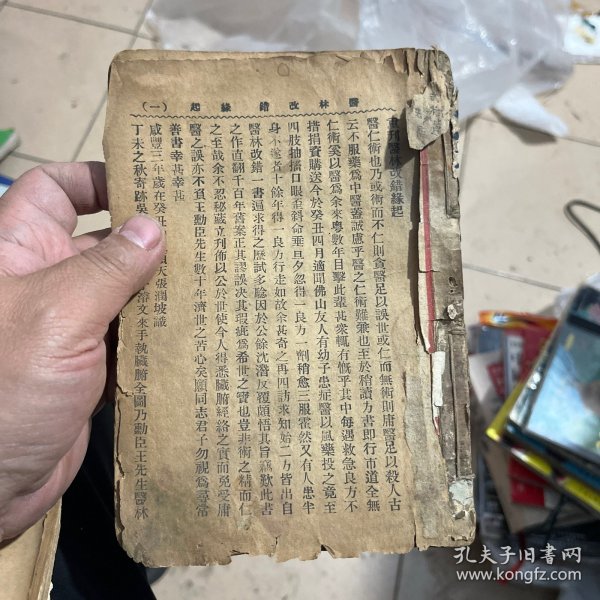 醫林改錯緣起 (一)
重刊醫林改錯緣起
醫仁術也乃或術而不仁則貪醫足以誤世或仁而無術則庸醫足以殺人古
云不服藥爲中醫蓋誠慮乎醫之仁術難兼也至於稍讀方書即行市道全無
仁術榮以醫爲余來粵數年目擊此輩甚衆輒有慨乎其中每遇救急良方不
揩捐資購送今於癸丑四月適聞佛山友人有幼子患症醫以風藥投之竟至
四肢抽搐口眼歪斜命垂旦夕忽得一良方一劑稍愈三服霍然又有人患半
身不遂者十餘年得一良方行走如故余甚奇之再四訪求知始二方皆出自
醫林改錯一書遍求得之歷試多驗因於公餘沈潛反覆頗悟其旨竊歎此書
之作直翻千百年舊案正其謬誤決其瑕疵爲希世之寶也豈非術之精而仁
之至哉余不忍秘藏立刋佈以公於世使今人得悉臟腑經絡之實而免受庸
醫之誤亦不負王勳臣先生數十年濟世之苦心矣願同志君子勿視爲尋常
善書幸甚幸甚
咸豐三年歲在癸丑 天張潤坡識
丁未之秋寄跡吳 文來手執臟腑全圖乃勳臣王先生醫林
孔夫子旧書网
www.kongfz.com